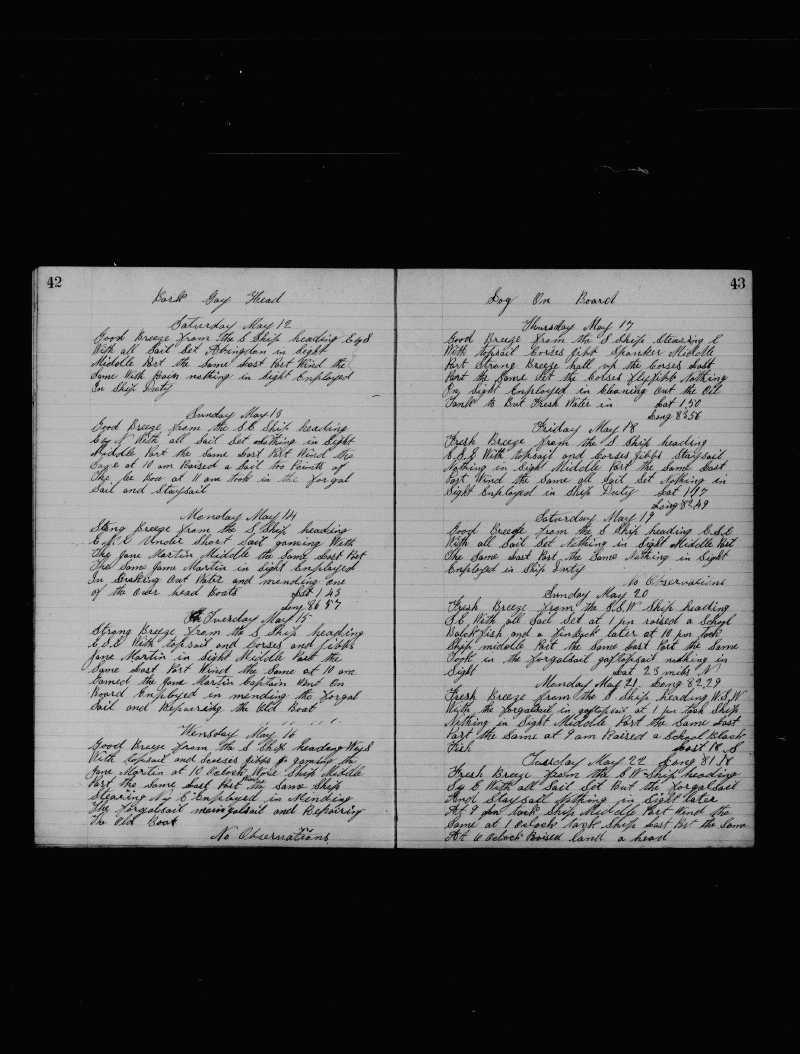 42
Bark Gay Head
Saturday May 12
Good Breeze from the S Ship heading E by S
With all Sail Set Abingdon in Sight
Middle Part the same Last Part Wind the
Same With Boats nothing in Sight Employed
In Ship Duty
Sunday May 13
Good Breeze from the S E Ship heading
E by N With all Sail Set nothing in Sight
Middle Part the same Last Part Wind the
Case at 10 am Raised a Sail two Points of
The lee Bow at 11 am took in the Forgal
Sail and Staysail
Monday May 14
Stong Breeze from the S Ship heading
E Under Short Sail gaming With
The Jane Martin Middle the Same Last Part
The Same Jane Martin in Sight Employed
In Braking Out Water and mending one
of the Over head Boats Lat 1 43
Long 86 57
Tuesday May 15
Strong Breeze from the S Ship heading
E.S.E With topsail and Corses and Jibbs
Jane Martin in Sight Middle Part the
Same Last Part Wind the Same at 10 am
Gamed the Jane Martin Captain Went On
Board Employed in mending the Forgal
Sail and Repairing the Old Boat
Wensday May 16
Good Breeze from the S Ship heading W by S
With topsail and Courses Jibbs gaming the
Jane Martin at 10 Oclock Wore Ship Middle
Part the Same Last Part the Same Ship
Stearing N by E Employed in Mending
The Forgalsail maingalsail and Repairing
The Old Boat
No Observations
43
Log On Board
Thursday May 17
Good Breeze from the S Ship Stearing E
With topsail Corses Jibb Spanker Middle
Part Strong Breeze hall up the Corses Last
Part the Same Set the Corses Flyjibb Nothing
In Sight Employed in Cleaning Out the Oil
Tank to Put Fresh Water in Lat 1,50
Long 83 56
Friday May 18
Fresh Breeze from the S Ship heading
E.S.E With topsail and Corses Jibbs Staysail
Nothing in Sight Middle Part the Same Last
Part Wind the Same all Sail Set Nothing in
Sight Employed in Ship Duty Lat 1 17
Long 82,49
Saturday May 19
Good Breeze from the S Ship heading E.S.E
With all Sail Set Nothing in Sight Middle Part
The Same Last Part the Same Nothing in Sight
Employed in Ship Duty
No Observations
Sunday May 20
Fresh Breeze from the S.S.W Ship heading
S E With all Sail Set at 1 pm raised a School
Blackfish and a Finback later at 10 pm tack
Ship middle Part the Same Last Part the Same
Took in the Forgalsail gaftopsail nothing in
Sight Lat 23 mils N
Monday May 21 Long 82,29
Fresh Breeze from the S Ship heading W.S.W
With the Forgalsail in gaftopsail at 1 pm tack Ship
Nothing in Sight Middle Part the Same Last
Part the Same at 9 am Raised a School Black
Fish Last 18 S
Tuesday May 22 Long 81 18
Fresh Breeze from the S W Ship heading
S by E With all Sail Set But the Forgalsail
And Staysail Nothing in Sight later
At 9 pm tack Ship Middle Part Wind the
Same at 1 Oclock tack Ship Last Part the Same
At 6 Oclock Raised land a head